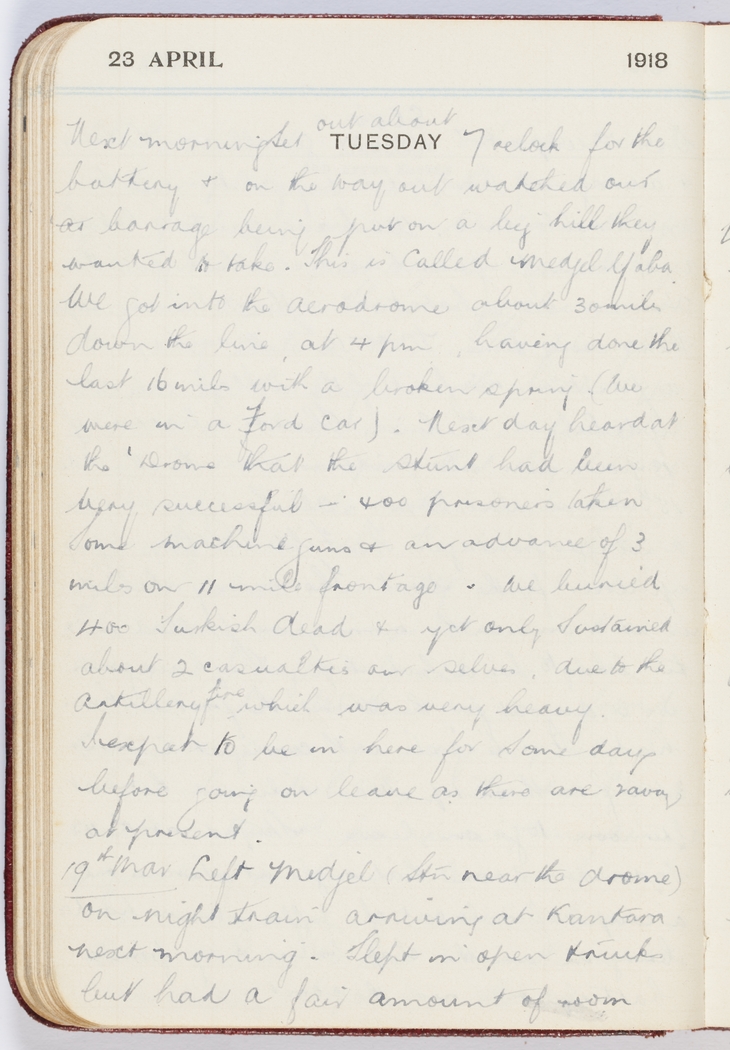 23 APRIL 1918
out about
Next morning set TUESDAY 7 oclock for the
battery & on the way out watched our
barrage being put on a big hill they
wanted to take. This is called Medjel Yaba
We got into the aerodrome about 30 miles
down the line, at 4 pm, having done the
last 16 miles with a broken spring (We
were in a Ford Car). Next day heard at
the 'Drome that the stunt had been
very successful - 400 prisoners taken
some machine guns & an advance of 3
miles on 11 mile frontage. We buried
400 Turkish dead & yet only sustained
about 2 casualties our selves, due to the
artillery fire which was very heavy.
I expect to be in here for some days
before going on leave as there are 2 away
at present.
19th Mar Left Medjel (Stn near the drome)
on night train arriving at Kantara
next morning. Slept in open trucks
but had a fair amount of room